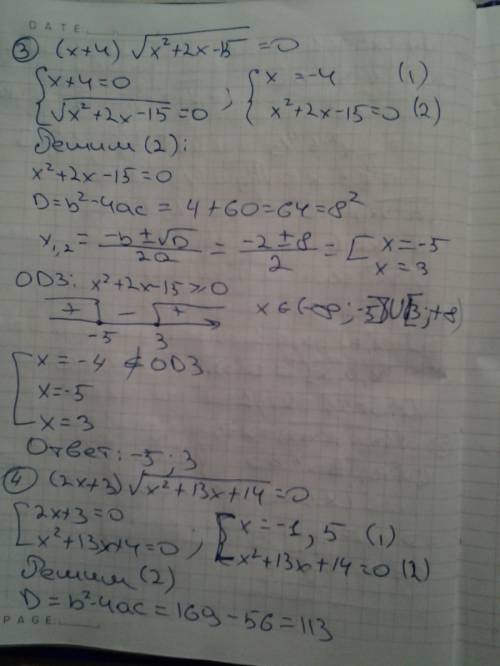 DATE
③ (x+4) √(x²+2x-15) = 0
{ x+4=0 ; { x=-4 (1)
{ √(x²+2x-15)=0 { x²+2x-15=0 (2)
Решим (2):
x²+2x-15=0
D=b²-4ac = 4+60=64=8²
x₁,₂ = (-b±√D)/2a = (-2±8)/2 = [ x=-5
x=3
ОДЗ: x²+2x-15≥0
+ - + x∈(-∞;-5]U[3;+∞)
-5 3
[ x=-4 ∉ ОДЗ
x=-5
x=3
Ответ: -5; 3
④ (2x+3) √(x²+13x+14)=0
{ 2x+3=0 ; [ x=-1,5 (1)
{ x²+13x+14=0 [ x²+13x+14=0 (2)
Решим (2)
D=b²-4ac=169-56=113
PAGE